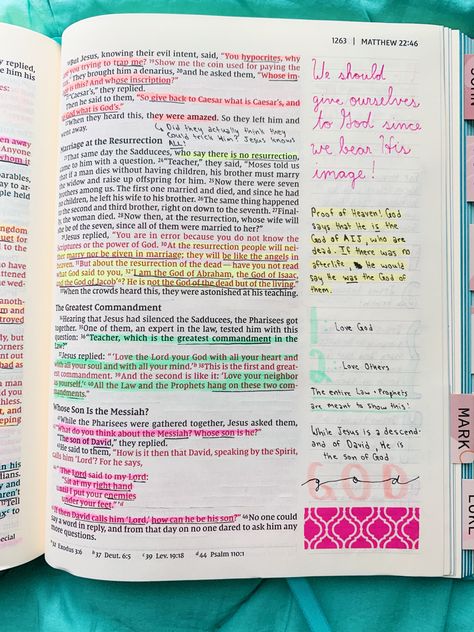 1263 | MATTHEW 22:46
18But Jesus, knowing their evil intent, said, "You hypocrites, why
are you trying to trap me? 19Show me the coin used for paying the
tax." They brought him a denarius, 20and he asked them, "Whose im-
age is this? And whose inscription?"
21"Caesar's," they replied.
Then he said to them, "So give back to Caesar what is Caesar's, and
to God what is God's."
22When they heard this, they were amazed. So they left him and
went away.
Did they actually think they
could trick Him? Jesus knows
ALL!
Marriage at the Resurrection
23That same day the Sadducees, who say there is no resurrection,
came to him with a question. 24"Teacher," they said, "Moses told us
that if a man dies without having children, his brother must marry
the widow and raise up offspring for him. 25Now there were seven
brothers among us. The first one married and died, and since he had
no children, he left his wife to his brother. 26The same thing happened
to the second and third brother, right on down to the seventh. 27Final-
ly, the woman died. 28Now then, at the resurrection, whose wife will
she be of the seven, since all of them were married to her?"
29Jesus replied, "You are in error because you do not know the
Scriptures or the power of God. 30At the resurrection people will nei-
ther marry nor be given in marriage; they will be like the angels in
heaven. 31But about the resurrection of the dead—have you not read
what God said to you, 32'I am the God of Abraham, the God of Isaac,
and the God of Jacob'b? He is not the God of the dead but of the living."
33When the crowds heard this, they were astonished at his teaching.
The Greatest Commandment
34Hearing that Jesus had silenced the Sadducees, the Pharisees got
together. 35One of them, an expert in the law, tested him with this
question: 36"Teacher, which is the greatest commandment in the
Law?"
37Jesus replied: "'Love the Lord your God with all your heart and
with all your soul and with all your mind.'c 38This is the first and great-
est commandment. 39And the second is like it: 'Love your neighbor
as yourself.'d 40All the Law and the Prophets hang on these two com-
mandments."
Whose Son Is the Messiah?
41While the Pharisees were gathered together, Jesus asked them,
42"What do you think about the Messiah? Whose son is he?"
"The son of David," they replied.
43He said to them, "How is it then that David, speaking by the Spirit,
calls him 'Lord'? For he says,
44"'The Lord said to my Lord:
"Sit at my right hand
until I put your enemies
under your feet."'d
45If then David calls him 'Lord,' how can he be his son?" 46No one could
say a word in reply, and from that day on no one dared to ask him any
more questions.
32 Exodus 3:6 b37 Deut. 6:5 c39 Lev. 19:18 d44 Psalm 110:1
We should
give ourselves
to God since
we bear His
image!
Proof of Heaven! God
says that He is the
God of AIJ, who are
dead. If there was
no afterlife, He would
say He was the God of
them.
1 Love God
2 Love Others
The entire Law + Prophets
are meant to show this!
While Jesus is a descend-
and of David, He is
the son of God
GOD
god
MARK
LUKE